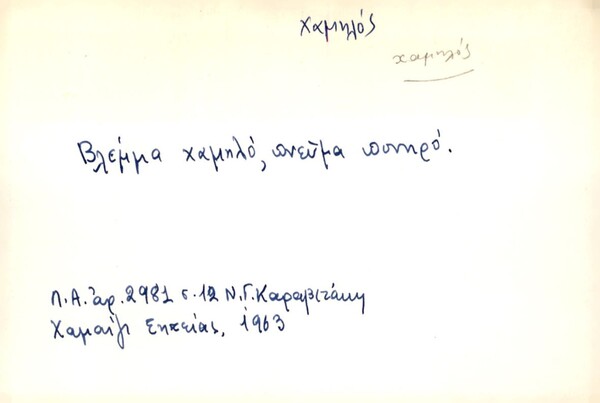 χαμηλός
χαμηλός
Βλέμμα χαμηλό, πνεῦμα πονηρό.
Λ.Α. ἀρ. 2981 σ. 12 Ν. Γ. Καραβιτάκη
Χαμαίζι Σητείας, 1963